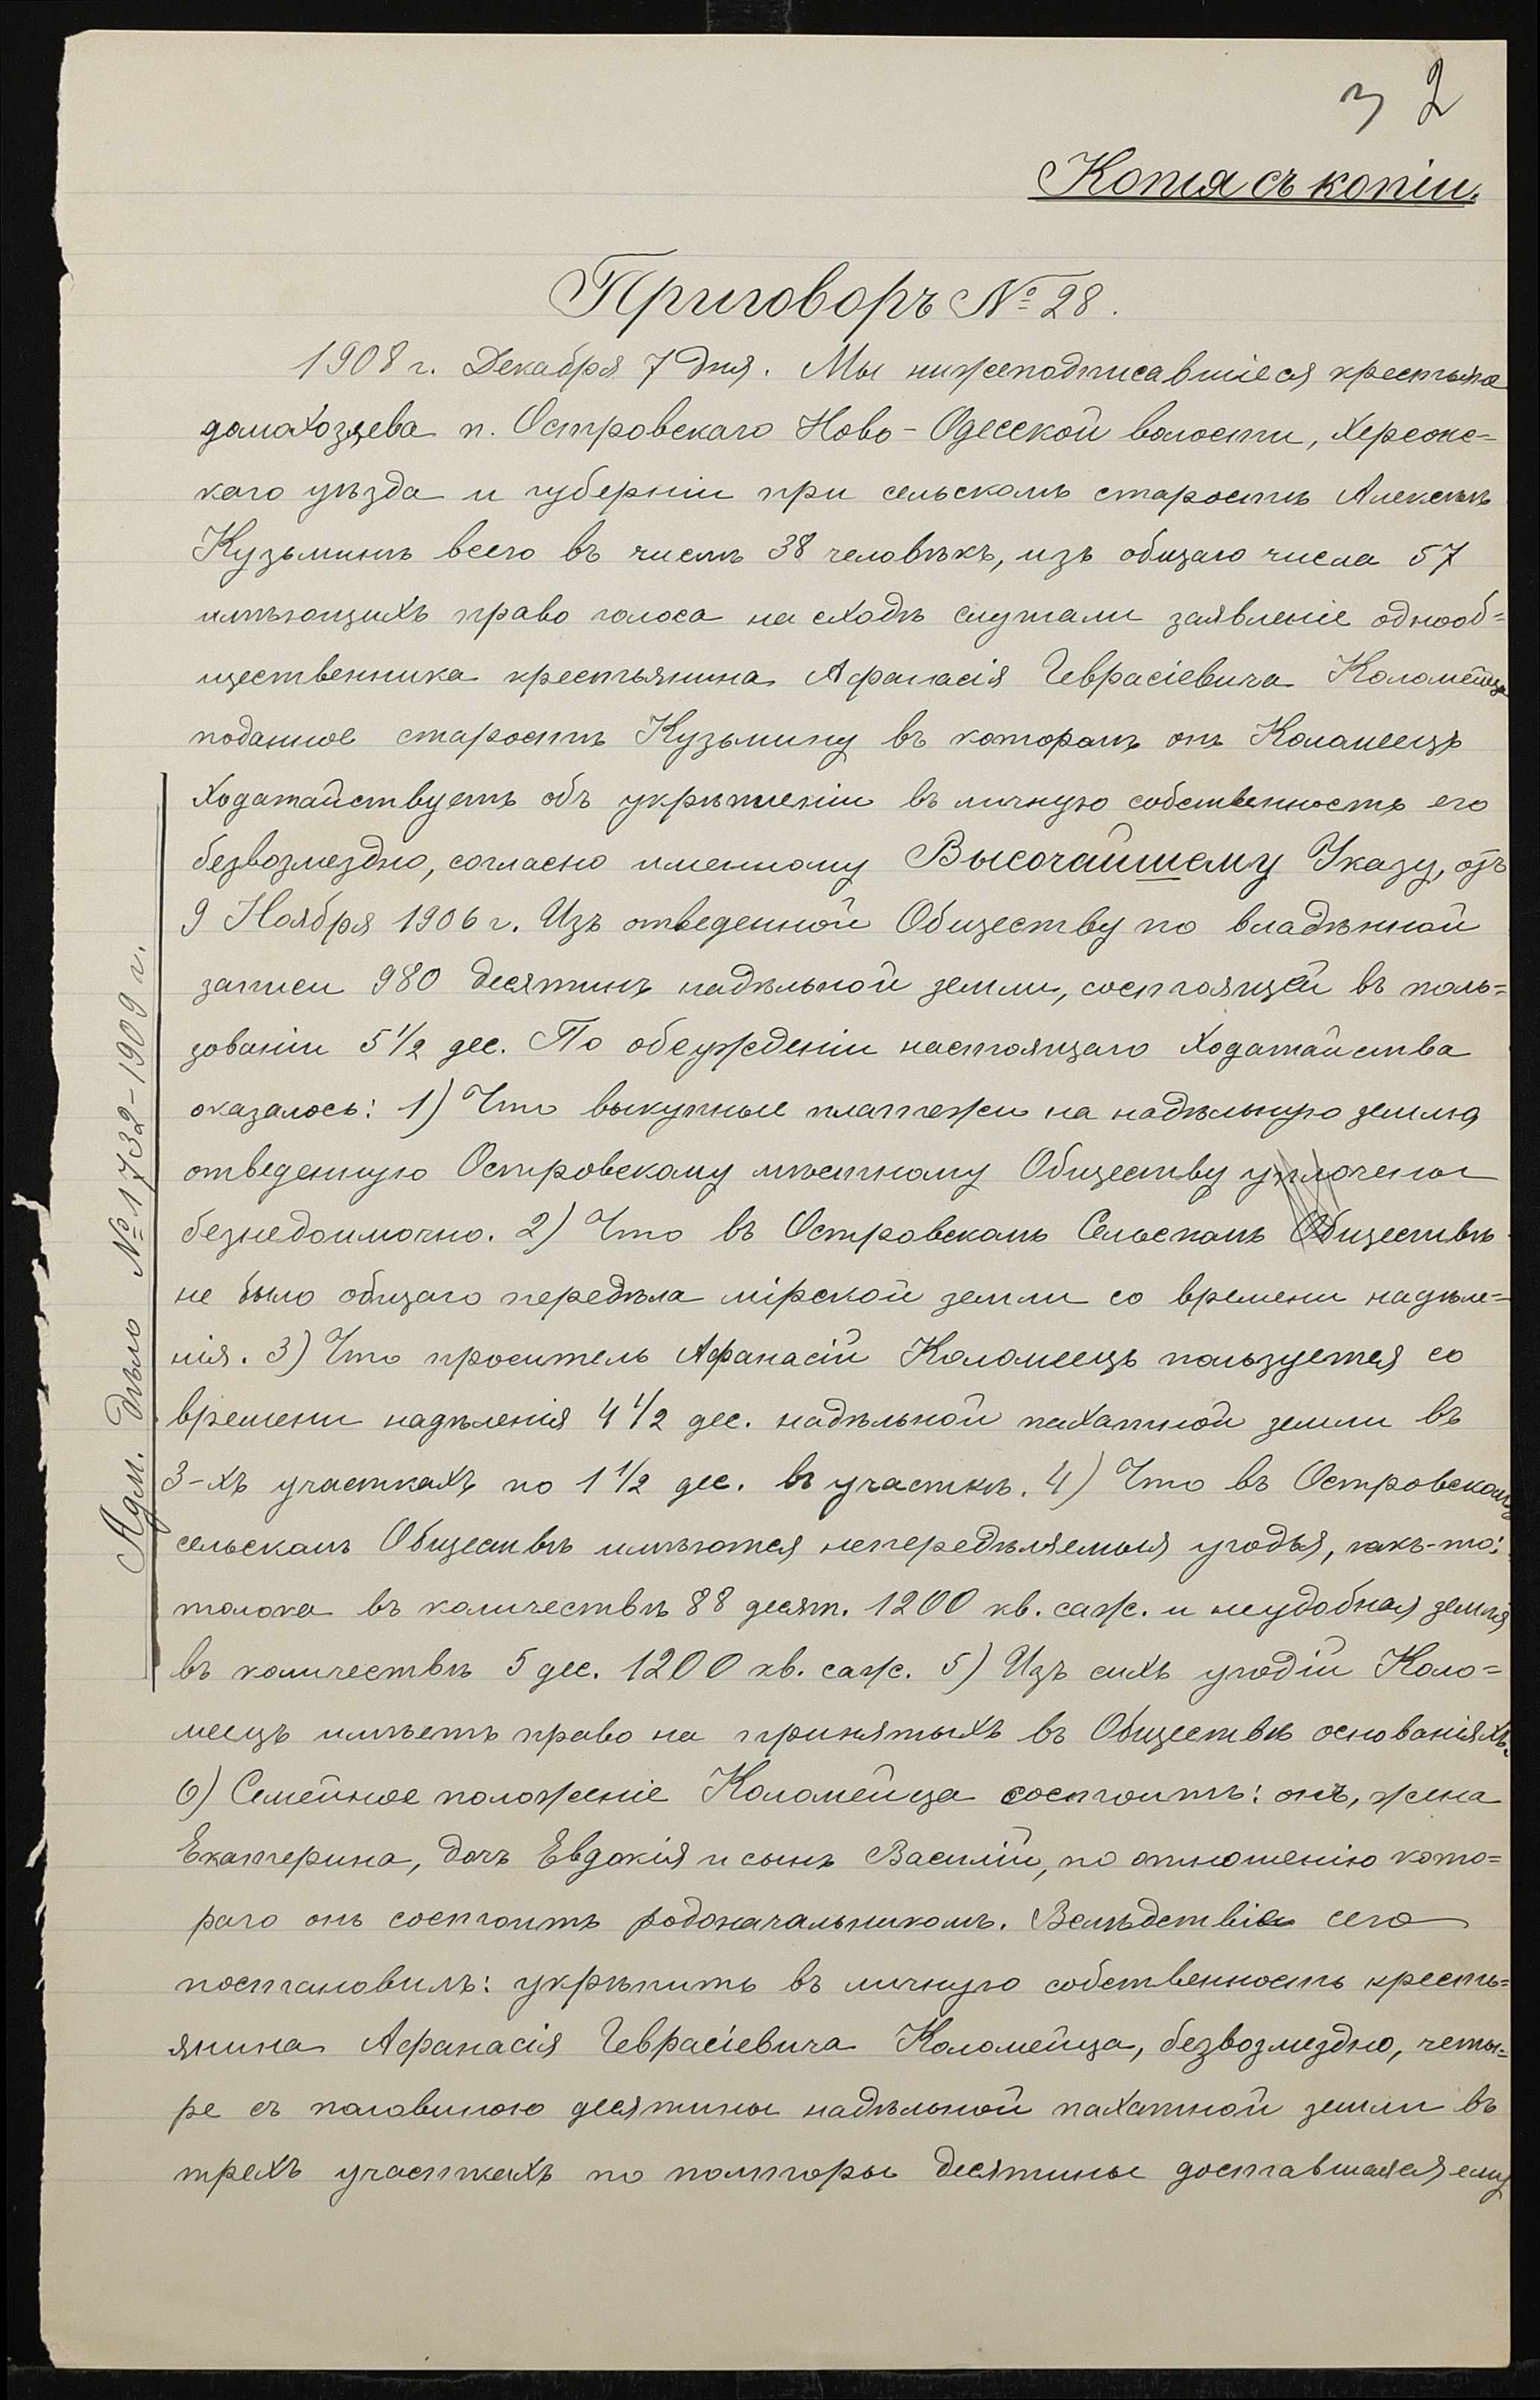 3 2
Копія съ копіи.
Приговоръ № 28.
1908 г. Декабря 7 дня. Мы нижеподписавшіеся крестьяне
домохозяева п. Островскаго Ново-Одесской волости, Херсонс=
каго уѣзда и губерніи при сельскомъ старостѣ Алексѣѣ
Кузьминѣ всего въ числѣ 38 человѣкъ, изъ общаго числа 57
имѣющихъ право голоса на сходѣ слушали заявленіе однооб=
щественника крестьянина Афанасія Геврасіевича Коломейца
поданное старостѣ Кузьмину въ которомъ онъ Коломеецъ
ходатайствуетъ объ укрѣпленіи въ личную собственность его
безвозмездно, согласно именному Высочайшему Указу, отъ
9 Ноября 1906 г. Изъ отведенной Обществу по владѣнной
записи 980 десятинъ надѣльной земли, состоящей въ поль=
зованіи 5 1/2 дес. По обсужденіи настоящаго ходатайства
оказалось: 1) Что выкупные платежи на надѣльную землю
отведенную Островскому мѣстному Обществу уплочены
безнедоимочно. 2) Что въ Островскомъ Сельскомъ Обществѣ
не было общаго передѣла мірской земли со времени надѣле=
нія. 3) Что проситель Афанасій Коломеецъ пользуется со
времени надѣленія 4 1/2 дес. надѣльной пахатной земли въ
3-хъ участкахъ по 1 1/2 дес. въ участкѣ. 4) Что въ Островскомъ
сельскомъ Обществѣ имѣются непередѣляемыя угодья, какъ-то:
толока въ количествѣ 88 десят. 1200 кв. саж. и неудобная земля
въ количествѣ 5 дес. 1200 кв. саж. 5) Изъ сихъ угодій Коло=
меецъ имѣетъ право на принятыхъ въ Обществѣ основаніяхъ.
6) Семейное положеніе Коломейца состоитъ: онъ, жена
Екатерина, дочь Евдокія и сынъ Василій, по отношенію кото=
раго онъ состоитъ родоначальникомъ. Вслѣдствіе сего
постановилъ: укрѣпить въ личную собственность кресть=
янина Афанасія Геврасіевича Коломейца, безвозмездно, четы=
ре съ половиною десятины надѣльной пахатной земли въ
трехъ участкахъ по полторы десятины доставшаяся ему
Адм. дѣло № 1732-1909 г.